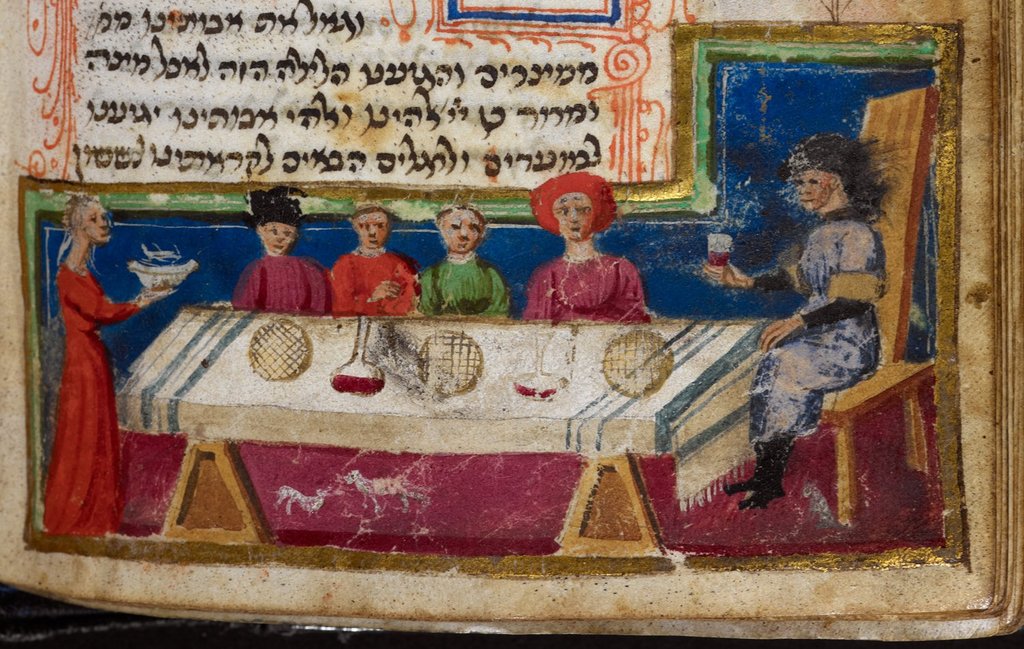 וגאל את אבותינו ממ
ממצרים והגיענו הלילה הזה לאכל מצה
ומרור כן יי' אלהינו ואלהי אבותינו יגיענו
למועדים ולרגלים הבאים לקראתינו לששון